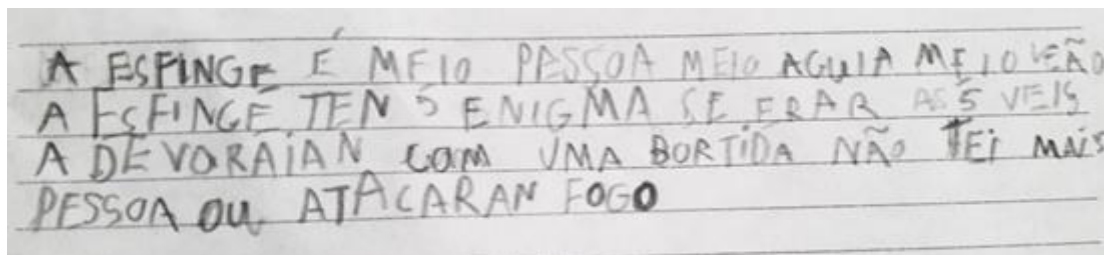 A ESFINGE É MEIO PASSOA MEIO AGUIA MEIO LEÃO
A ESFINGE TEN 5 ENIGMA SE ERAR AS 5 VEIS
A DEVORAIAN COM UMA BORTIDA NÃO TEI MAIS
PESSOA OU ATACARAN FOGO